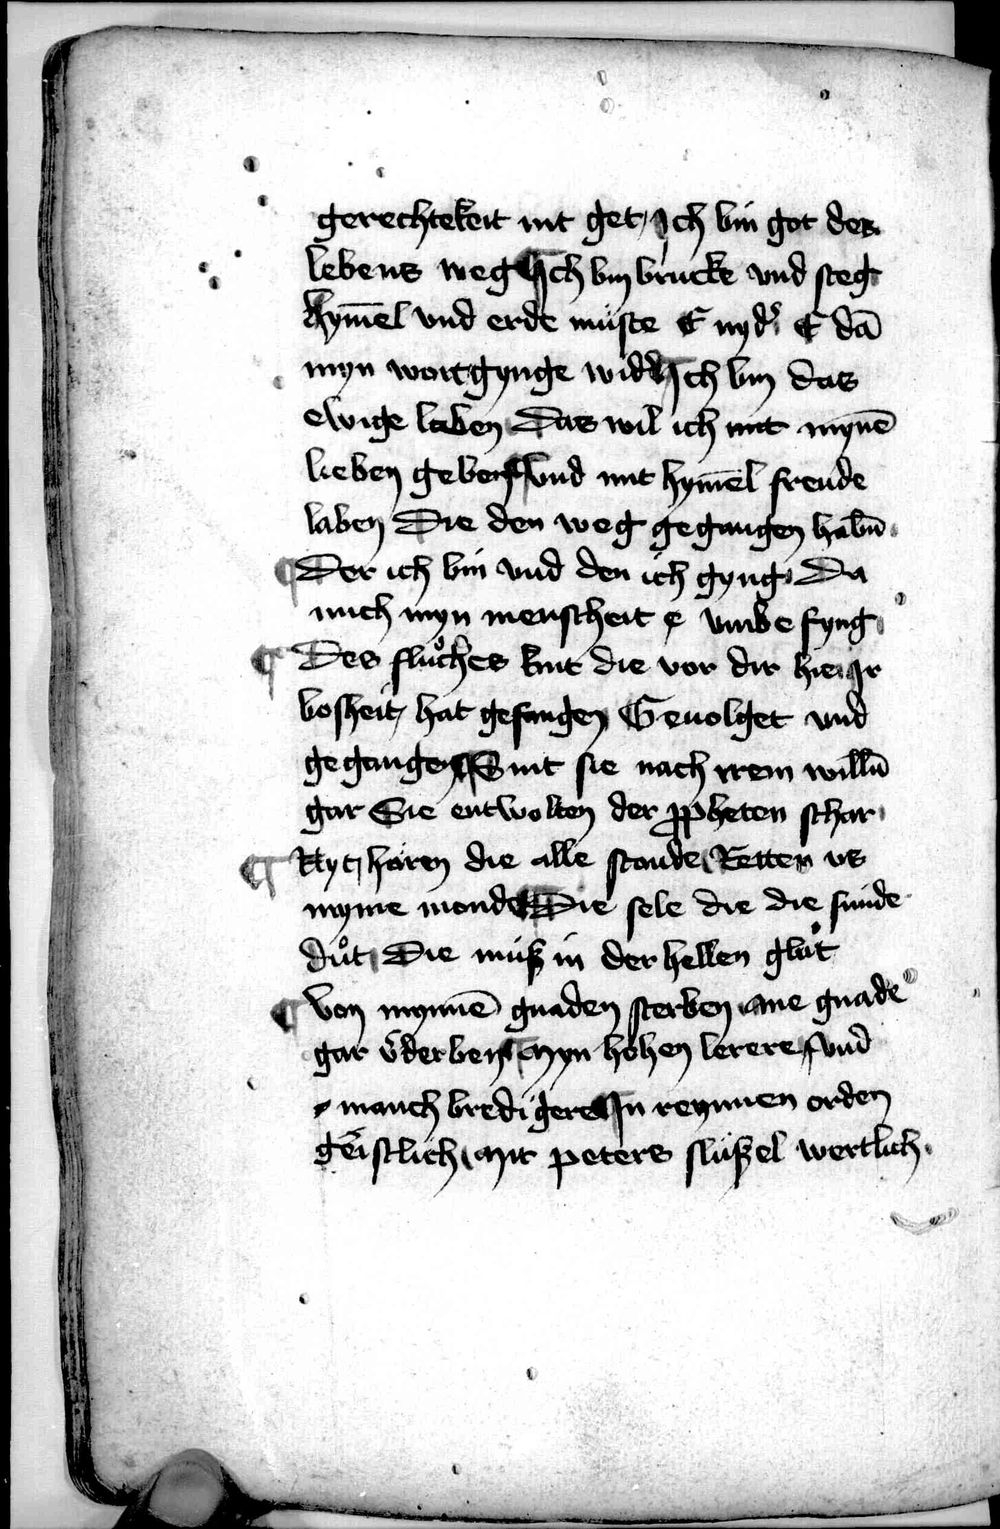 gerechtekeit nit get / Ich bin got des
lebens weg Ich bin brucke vnd steg
hym̄el vnd erde müste E nyd' E dā
myn wort gynge widd' Ich bin das
ewige leben Das wil ich mit mynē
lieben geben Vnd mit hym̄el freude
laben Die den weg gegangen habn̄
¶ Der ich bin vnd den ich gyng Da
mich myn menscheit e vmbe fyng
¶ Des fluͦches kint die vor dir hie Ir
bosheit / hat gefangen Geuolget vnd
gegangen Sint sie nach irem willn̄
gar Sie entwolten der ꝓpheten schar
¶ Nyt / hören die alle stonde Retten vs
myme monde Die sele die die sunde
duͦt Die muͦß in der hellen gluͦt
¶ Von mynnē gnaden sterben ane gnade
gar v̄derben Myn hohen lerere / vnd
manch bredigere In reynnen orden
geistlich Mit peters slußel wertlich